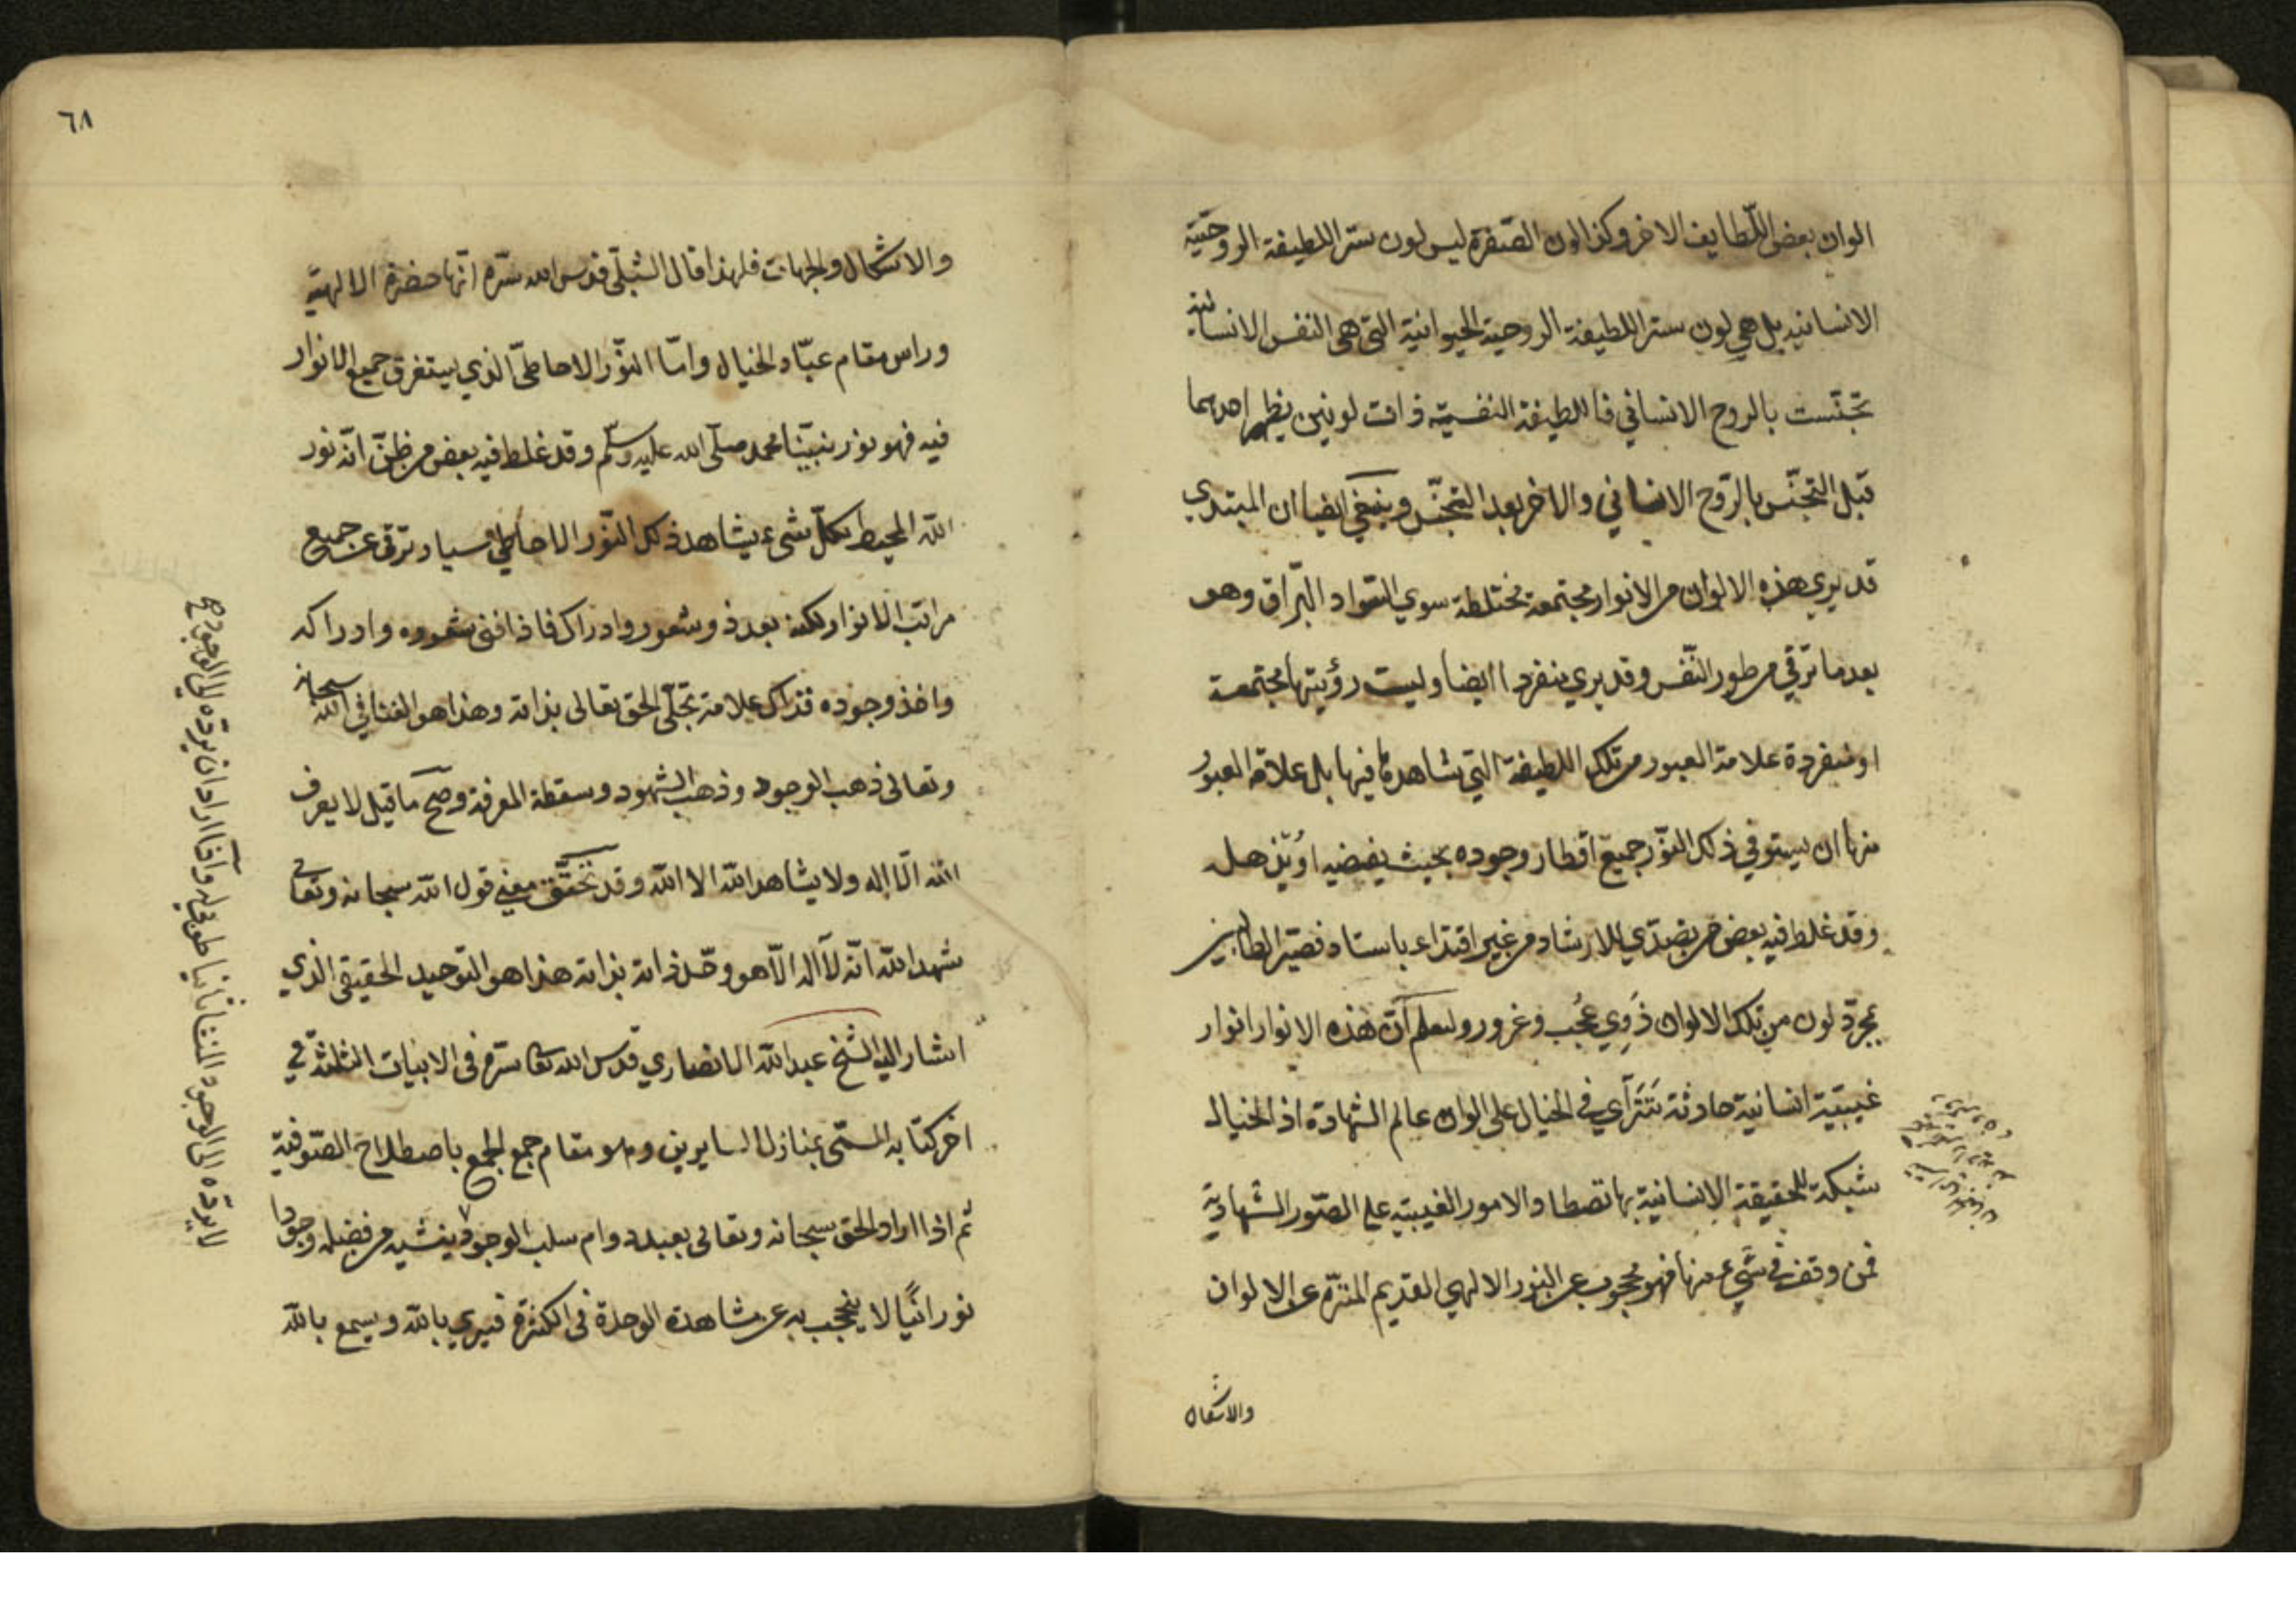 الوان بعض اللّطايف الاخر وكذا لون الصّفرة ليس لون ستر اللطيفة الروحيّة
الانسانيه بل هي لون ستر اللطيفة الروحية الحيوانية التي هي النفس الانسانية
تجنّست بالروح الانساني فاللطيفة النفسيّة ذات لونين يظهر احدهما
قبل التجنّس بالرّوح الانساني والاخر بعد التجنّس وينبغي ايضا ان المبتدي
قد يري هذه الالوان من الانوار مجتمعة مختلطة سوي السّواد البرّاق وهو
بعد ما ترقي من طور النّفس وقد يري منفردا ايضا وليست رؤيتها مجتمعة
او منفردة علامة العبور من تلك اللطيفة التي شاهدها فيها بل علامة العبور
منها ان يستوفي ذلك النّور جميع اقطار وجوده بحيث يفضيه او يذهل
وقد غلط فيه بعض من يتصدّي للارشاد من غير اقتداء باستاد فصيّر الطالبين
بمجرّد لون من تلك الالوان ذَوِي عُجب وغرور وليعلم انّ هذه الانوار انوار
غيبيّة انسانية حادثة تتراَي في الخيال على الوان عالم الشهادة اذ الخيال
شبكة للحقيقة الانسانية بها تصطاد الامور الغيبيّه على الصّور الشهاديّة
فمن وقف في شي ء منها فهو محجوب عن النور الالهي القديم المنزّه عن الالوان
والاشكال
٦٨
والاشكال والجهات فلهذا قال الشبلّي قدس الله سرّه انّها حضرة الالهيّة
وراس مقام عبّاد الخيال وامّا النّور الاحاطىّ الذي يستغرق جميع الانوار
فيه فهو نور نبيّنا محمد صلّى الله عليه وسلّم وقد غلط فيه بعض من ظنّ انّه نور
الله المحيط بكلّ شيء يشاهد ذلك النّور الاحاطي سيار ترقى عن جميع
مراتب الانوار لكنه بعد ذو شعور وادراك فاذا فنى شعوره وادراكه
واخذ وجوده فذاك علامة تجلّي الحق تعالى بذاته وهذا هو الفنا في الله سبحانه
وتعالى ذهب الوجود وذهب الشهود وسقطة المعرفة وصحّ ما قيل لا يعرف
الله الّا اله ولا يشاهد الله الا الله وقد تحقّق معني قول الله سبحانه وتعالى
شهد الله انّه لآ اله الّا هو وحّد ذاته بذاته هذا هو التوحيد الحقيقى الذي
اشار اليه الشّيخ عبد الله الانصاري قدس الله تعا سره فى الابيات الثلثة في
اخر كتابه المسمّى بمنازل السايرين وهو مقام جمع الجمع باصطلاح الصّوفيّة
ثم اذا اراد الحق سبحانه وتعالى بعبد دوام سلب الوجود ينشيه من فضله وجودا
نورانيًا لا ينحجب به عن مشاهدة الوحدة في الكثرة فيري بالله ويسمع بالله
لا يردّه الى الوجود للفنا ثانيا طوبى له وان اراد ان يردّه الى الوجود صح